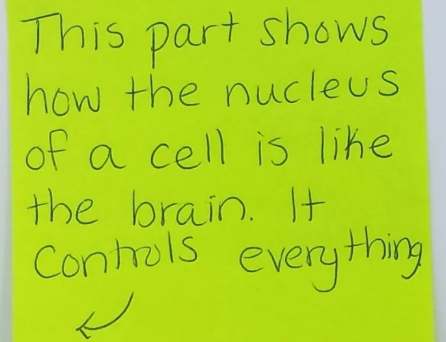 This part shows
how the nucleus
of a cell is like
the brain. It
Controls everything